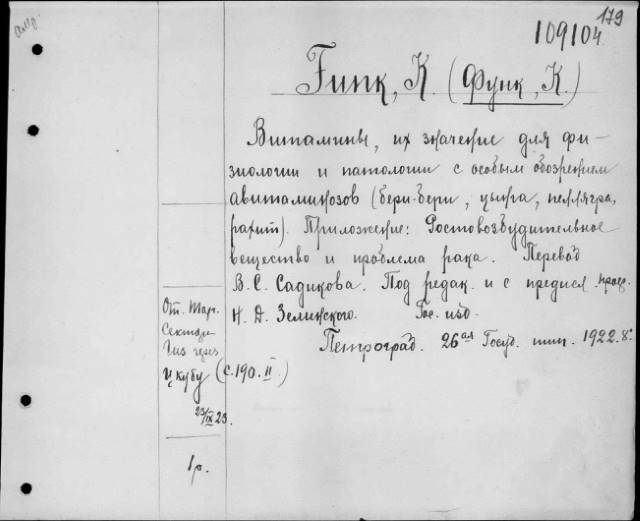 179
109104
Funk, К. (Функ, К.)
Витамины, их значение для фи-
зиологии и патологии с особым обозрением
авитаминозов (бери-бери, цынга, пеллагра,
рахит). Приложение: Ростовозбудительное
вещество и проблема рака. Перевод
В. С. Садикова. Под редак. и с предисл. проф.
Н. Д. Зелинского. Гос. изд.
Петроград. 26ая Госуд. тип. 1922. 8°.
От.
(с. 190. II.)
23/IX 23.
1р.